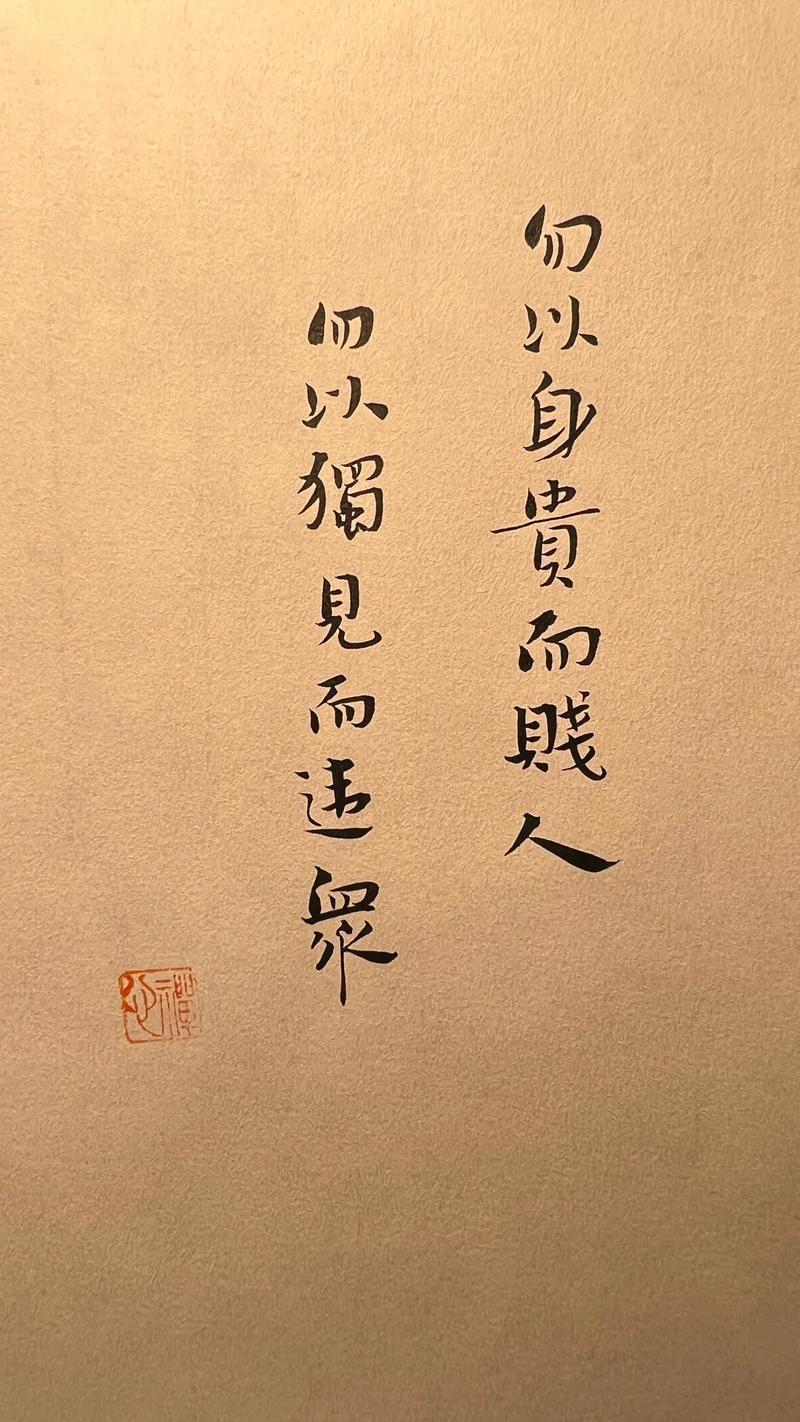 勿以身貴而賤人
勿以獨見而违眾